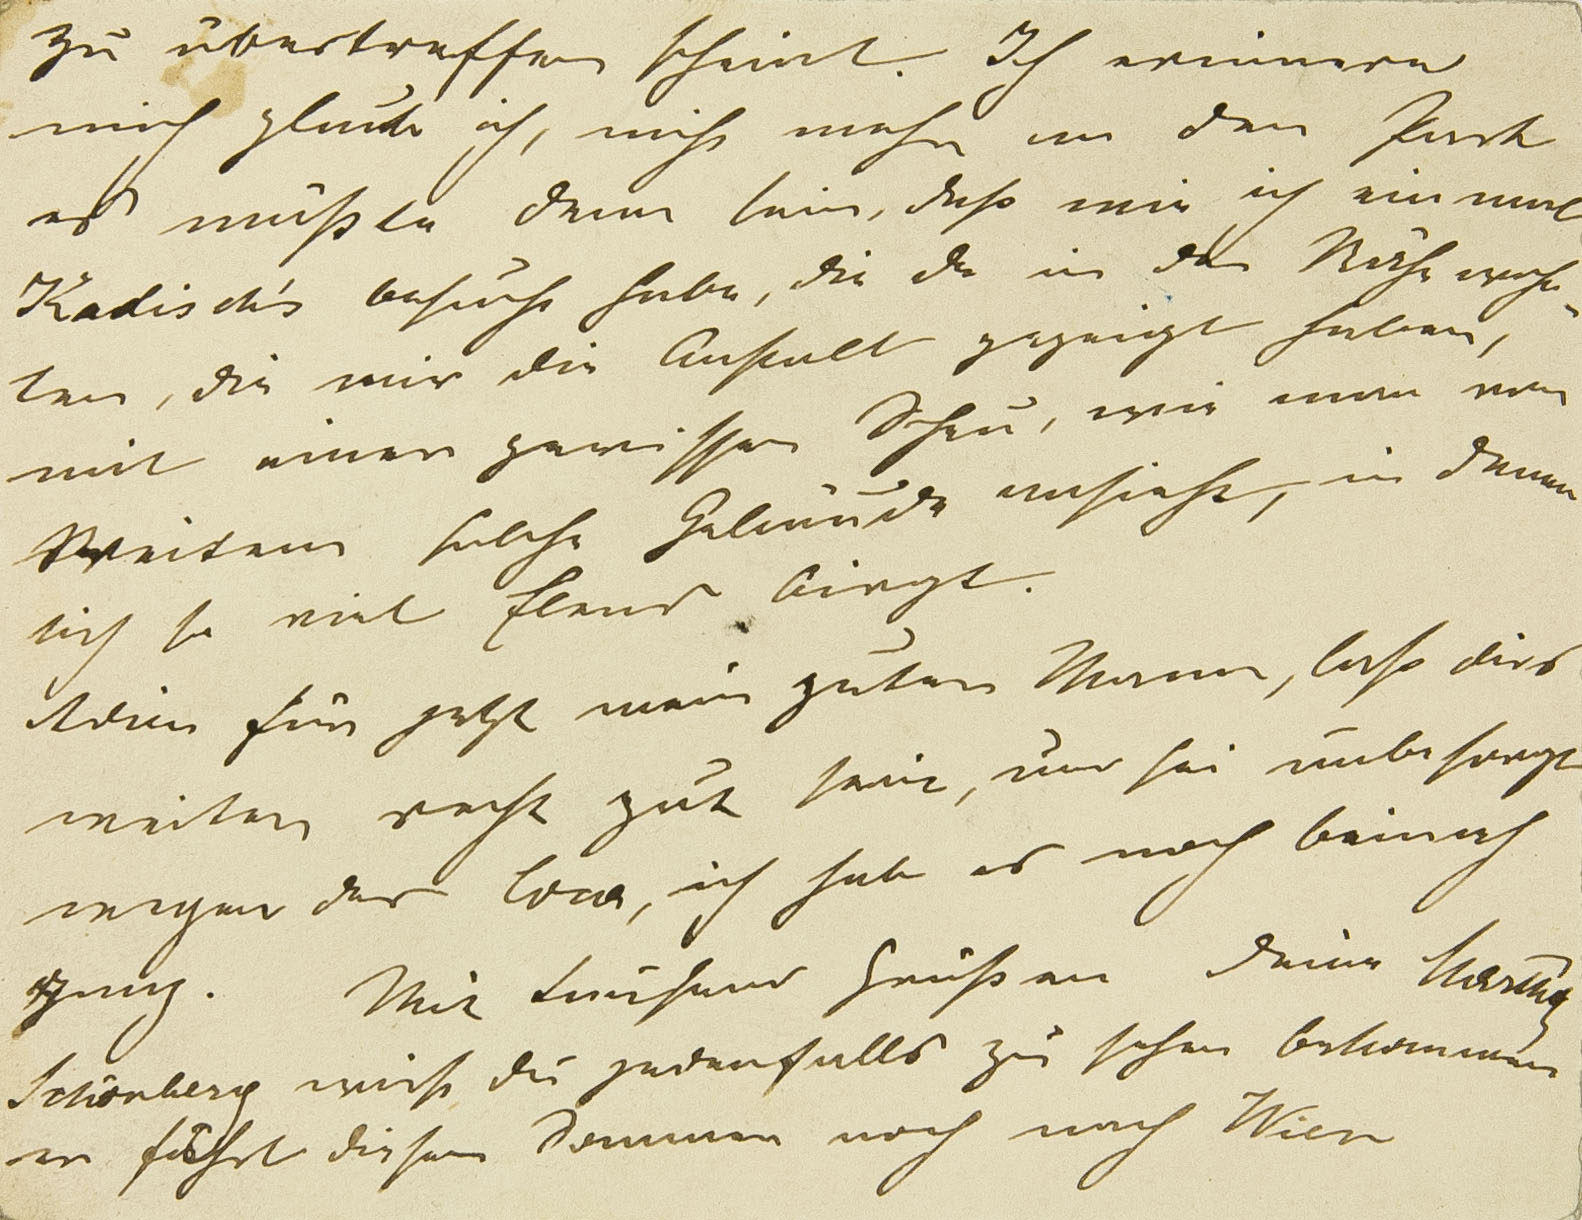 zu übertreffen scheint. Ich erinnere
mich glaub ich, nicht mehr an den Park
es müßte denn sein, daß wie ich einmal
Kadisch's besucht habe, die da in der Nähe wohn-
ten, die mir die Anstalt gezeigt haben,
mit einer gewissen Scheu, wie man von
Weitem solche Gebäude ansieht, in denen
sich so viel Elend birgt.
Adieu für jetzt mein guter Mann, laß dirs
weiter recht gut sein, und sei unbesorgt
wegen der Coca, ich hab es noch beinah
ganz. Mit tausend Grüßen deine Martha
Schönberg wirst du jedenfalls zu sehen bekommen
er fährt diesen Sommer noch nach Wien